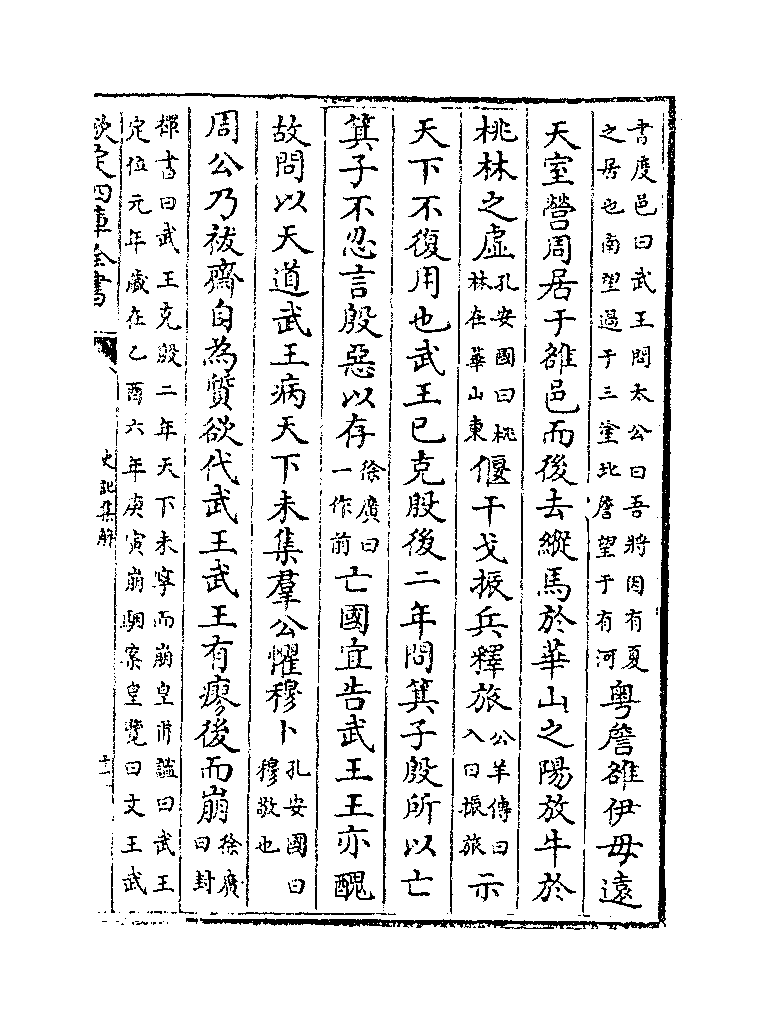 書度邑曰武王問太公曰吾將因有夏之居也南望過于三塗北詹望于有河粤詹雒伊毋遠
天室營周居于雒邑而後去縱馬於華山之陽放牛於
桃林之虛孔安國曰桃林在華山東偃干戈振兵釋旅公羊傳曰入曰振旅示
天下不復用也武王已克殷後二年問箕子殷所以亡
箕子不忍言殷惡以存徐廣曰一作前亡國宜告武王王亦醜
故問以天道武王病天下未集羣公懼穆卜孔安國曰穆敬也
周公乃祓齋自為質欲代武王武王有瘳後而崩徐廣曰封
禪書曰武王克殷二年天下未寧而崩皇甫謐曰武王定位元年歲在乙酉六年庚寅崩駰案皇覽曰文王武
欽定四庫全書
史記集解
十一